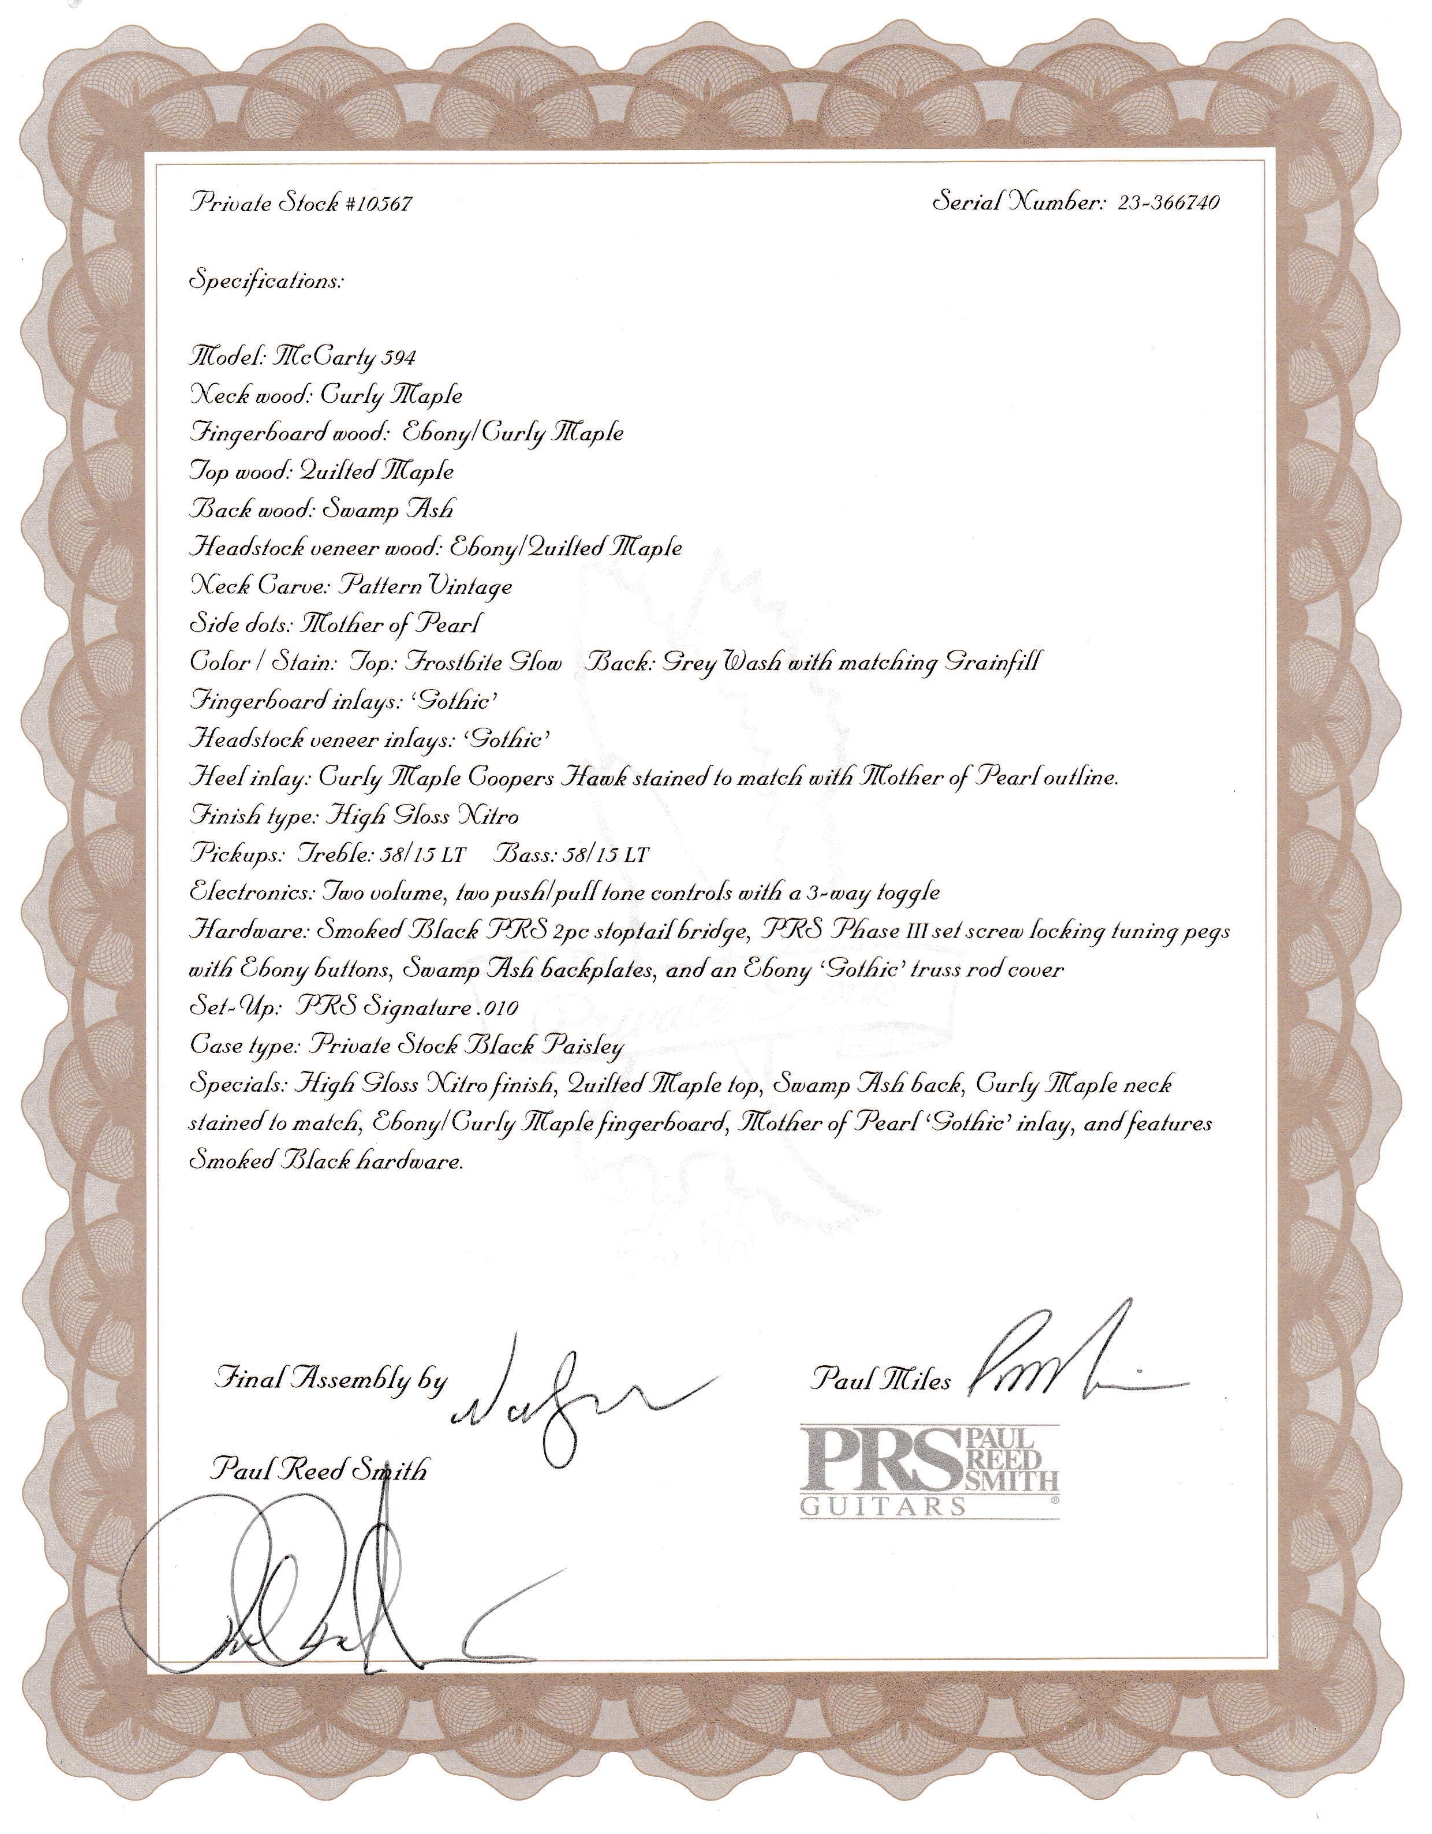 Private Stock #10567
Serial Number: 23-366740
Specifications:
Model: McCarty 594
Neck wood: Curly Maple
Fingerboard wood: Ebony/Curly Maple
Top wood: Quilted Maple
Back wood: Swamp Ash
Headstock veneer wood: Ebony/Quilted Maple
Neck Carve: Pattern Vintage
Side dots: Mother of Pearl
Color / Stain: Top: Frostbite Glow Back: Grey Wash with matching Grainfill
Fingerboard inlays: ‘Gothic’
Headstock veneer inlays: ‘Gothic’
Heel inlay: Curly Maple Coopers Hawk stained to match with Mother of Pearl outline.
Finish type: High Gloss Nitro
Pickups: Treble: 58/15 LT Bass: 58/15 LT
Electronics: Two volume, two push/pull tone controls with a 3-way toggle
Hardware: Smoked Black PRS 2pc stoptail bridge, PRS Phase III set screw locking tuning pegs
with Ebony buttons, Swamp Ash backplates, and an Ebony ‘Gothic’ truss rod cover
Set-Up: PRS Signature .010
Case type: Private Stock Black Paisley
Specials: High Gloss Nitro finish, Quilted Maple top, Swamp Ash back, Curly Maple neck
stained to match, Ebony/Curly Maple fingerboard, Mother of Pearl ‘Gothic’ inlay, and features
Smoked Black hardware.
Final Assembly by
Paul Miles
Paul Reed Smith
PRS PAUL
REED
SMITH
GUITARS ®